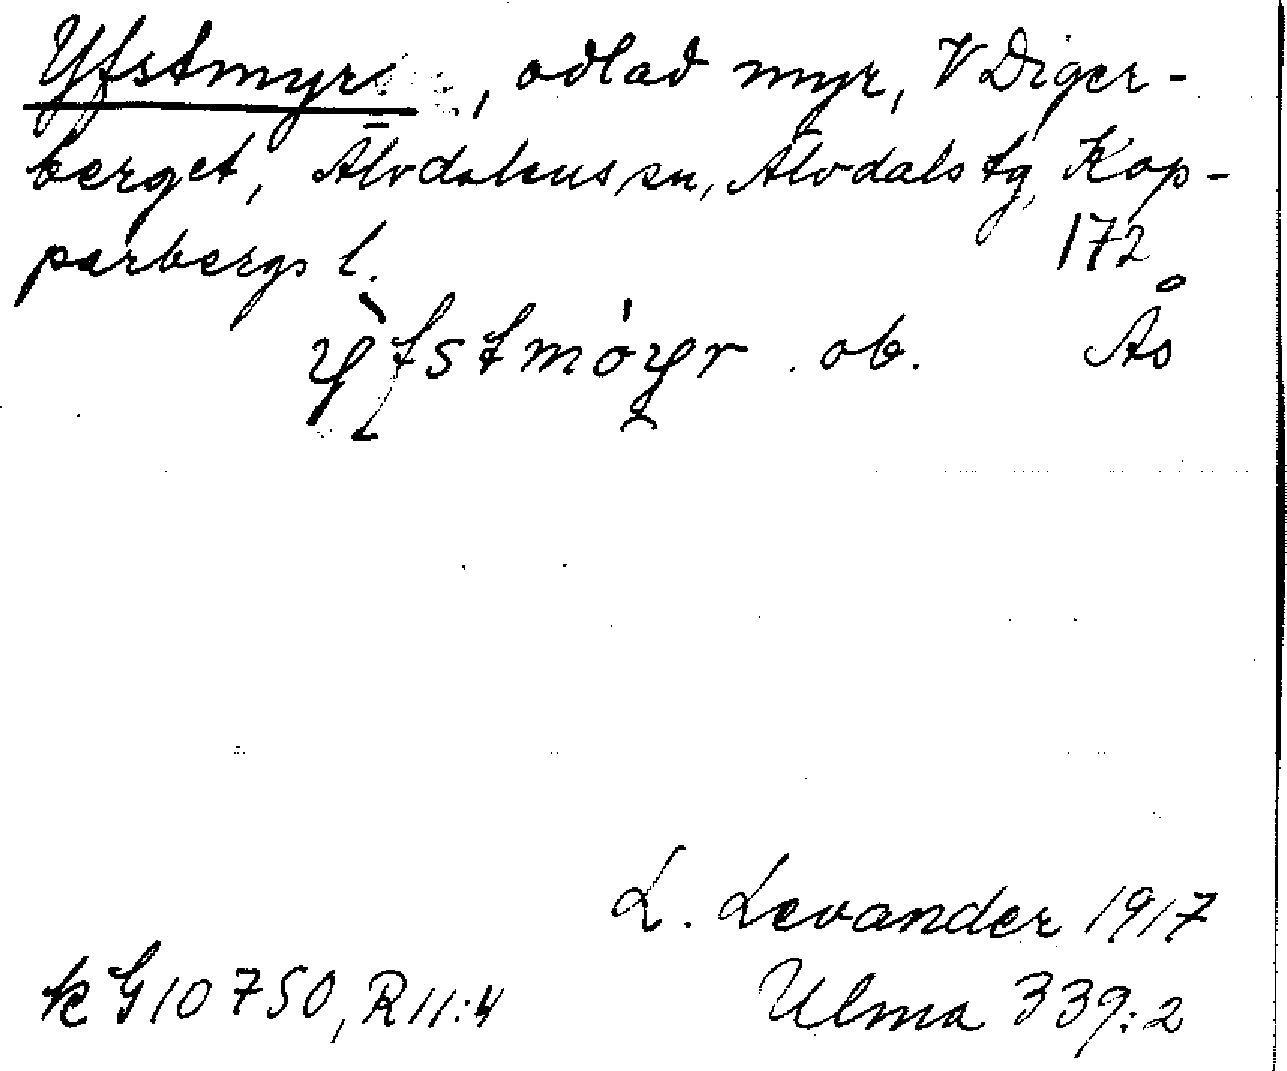 Yfstmyr, odlad myr, V Diger-
berget, Älvdalens sn, Älvdals tg, Kop-
parbergs l. 172
ỳfstmóyr ob. Åo
L. Levander 1917
k G10750, R11:4 Ulma 339:2